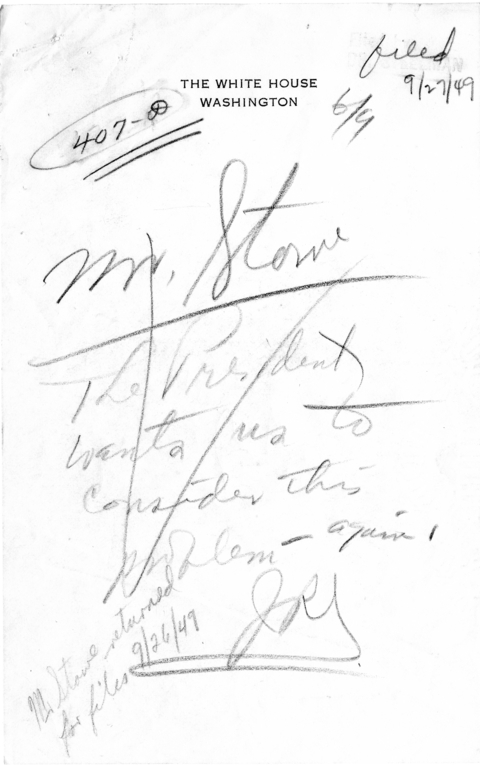 filed
9/27/49
THE WHITE HOUSE
WASHINGTON
6/9
407-B
Mr. Stowe
The President
wants us to
consider this
problem - again!
JRS
Mr Stowe returned
for files 9/26/49